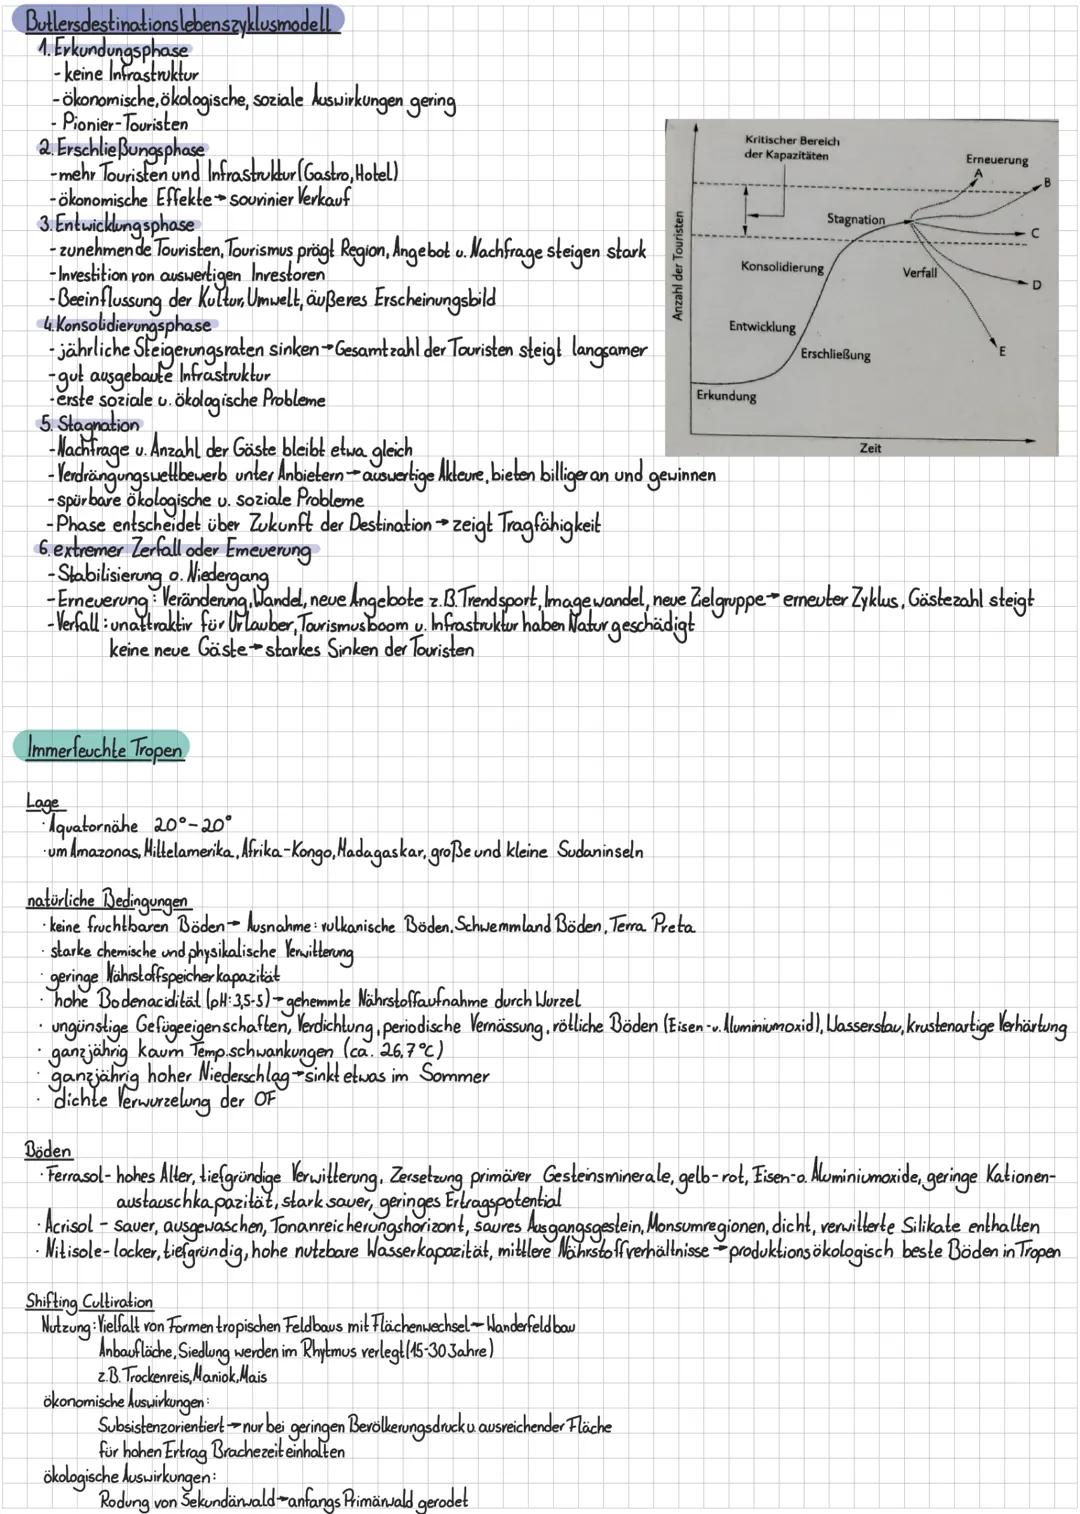 Butlersdestinationslebenszyklusmodell
1. Erkundungsphase
- keine Infrastruktur
- ökonomische, ökologische, soziale Auswirkungen gering
- Pionier-Touristen
2. Erschließungsphase
- mehr Touristen und Infrastruktur (Gastro, Hotel)
- ökonomische Effekte → souvinier Verkauf
3. Entwicklungsphase
- zunehmende Touristen, Tourismus prägt Region, Angebot u. Nachfrage steigen stark
- Investition von auswertigen Investoren
- Beeinflussung der Kultur, Umwelt, äußeres Erscheinungsbild
4. Konsolidierungsphase
- jährliche Steigerungsraten sinken → Gesamtzahl der Touristen steigt langsamer
- gut ausgebaute Infrastruktur
- erste soziale u. ökologische Probleme
5. Stagnation
- Nachfrage u. Anzahl der Gäste bleibt etwa gleich
- Verdrängungswettbewerb unter Anbietern → auswertige Akteure, bieten billiger an und gewinnen
- spürbare ökologische u. soziale Probleme
- Phase entscheidet über Zukunft der Destination → zeigt Tragfähigkeit
6. extremer Zerfall oder Erneuerung
- Stabilisierung o. Niedergang
- Erneuerung: Veränderung, Wandel, neue Angebote z.B. Trendsport, Imagewandel, neue Zielgruppe → erneuter Zyklus, Gästezahl steigt
- Verfall: unattraktiv für Urlauber, Tourismusboom u. Infrastruktur haben Natur geschädigt
keine neue Gäste → starkes Sinken der Touristen
Kritischer Bereich
der Kapazitäten
Erneuerung
A
B
Stagnation
C
Konsolidierung
Verfall
D
Entwicklung
Erschließung
E
Erkundung
Anzahl der Touristen
Zeit
Immerfeuchte Tropen
Lage
· Äquatornähe 20°-20°
· um Amazonas, Mittelamerika, Afrika-Kongo, Madagaskar, große und kleine Sudaninseln
natürliche Bedingungen
· keine fruchtbaren Böden → Ausnahme: vulkanische Böden, Schwemmland Böden, Terra Preta
· starke chemische und physikalische Verwitterung
· geringe Nährstoffspeicherkapazität
· hohe Bodenacidität (pH: 3,5-5) → gehemmte Nährstoffaufnahme durch Wurzel
· ungünstige Gefügeeigenschaften, Verdichtung, periodische Vernässung, rötliche Böden (Eisen- u. Aluminiumoxid), Wasserstau, krustenartige Verhärtung
· ganzjährig kaum Temp.schwankungen (ca. 26,7°C)
· ganzjährig hoher Niederschlag → sinkt etwas im Sommer
· dichte Verwurzelung der OF
Böden
· Ferrasol - hohes Alter, tiefgründige Verwitterung, Zersetzung primärer Gesteinsminerale, gelb-rot, Eisen- o. Aluminiumoxide, geringe Kationen-
austauschkapazität, stark sauer, geringes Ertragspotential
· Acrisol - sauer, ausgewaschen, Tonanreicherungshorizont, saures Ausgangsgestein, Monsumregionen, dicht, verwitterte Silikate enthalten
· Nitisole - locker, tiefgründig, hohe nutzbare Wasserkapazität, mittlere Nährstoffverhältnisse → produktionsökologisch beste Böden in Tropen
Shifting Cultivation
Nutzung: Vielfalt von Formen tropischen Feldbaus mit Flächenwechsel → Wanderfeldbau
Anbaufläche, Siedlung werden im Rhytmus verlegt (15-30 Jahre)
z.B. Trockenreis, Maniok, Mais
ökonomische Auswirkungen:
Subsistenzorientiert → nur bei geringen Bevölkerungsdruck u. ausreichender Fläche
für hohen Ertrag Brachezeit einhalten
ökologische Auswirkungen:
Rodung von Sekundärwald → anfangs Primärwald gerodet